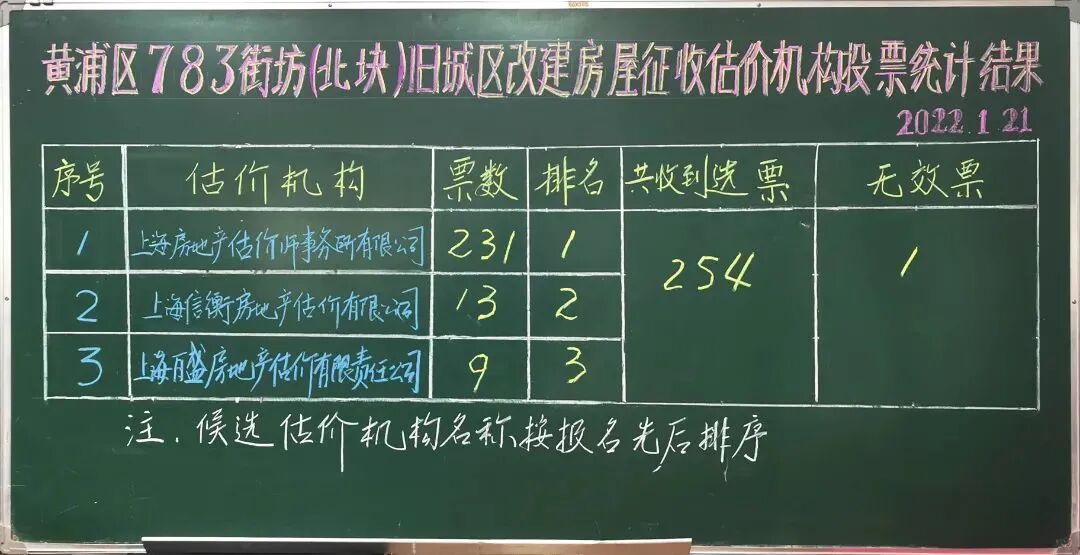 黄浦区783街坊(北块)旧城区改建房屋征收估价机构投票统计结果
2022.1.21
序号 估价机构 票数 排名 共收到选票 无效票
1 上海房地产估价师事务所有限公司 231 1 254 1
2 上海信衡房地产估价有限公司 13 2
3 上海百盛房地产估价有限责任公司 9 3
注.候选估价机构名称按报名先后排序